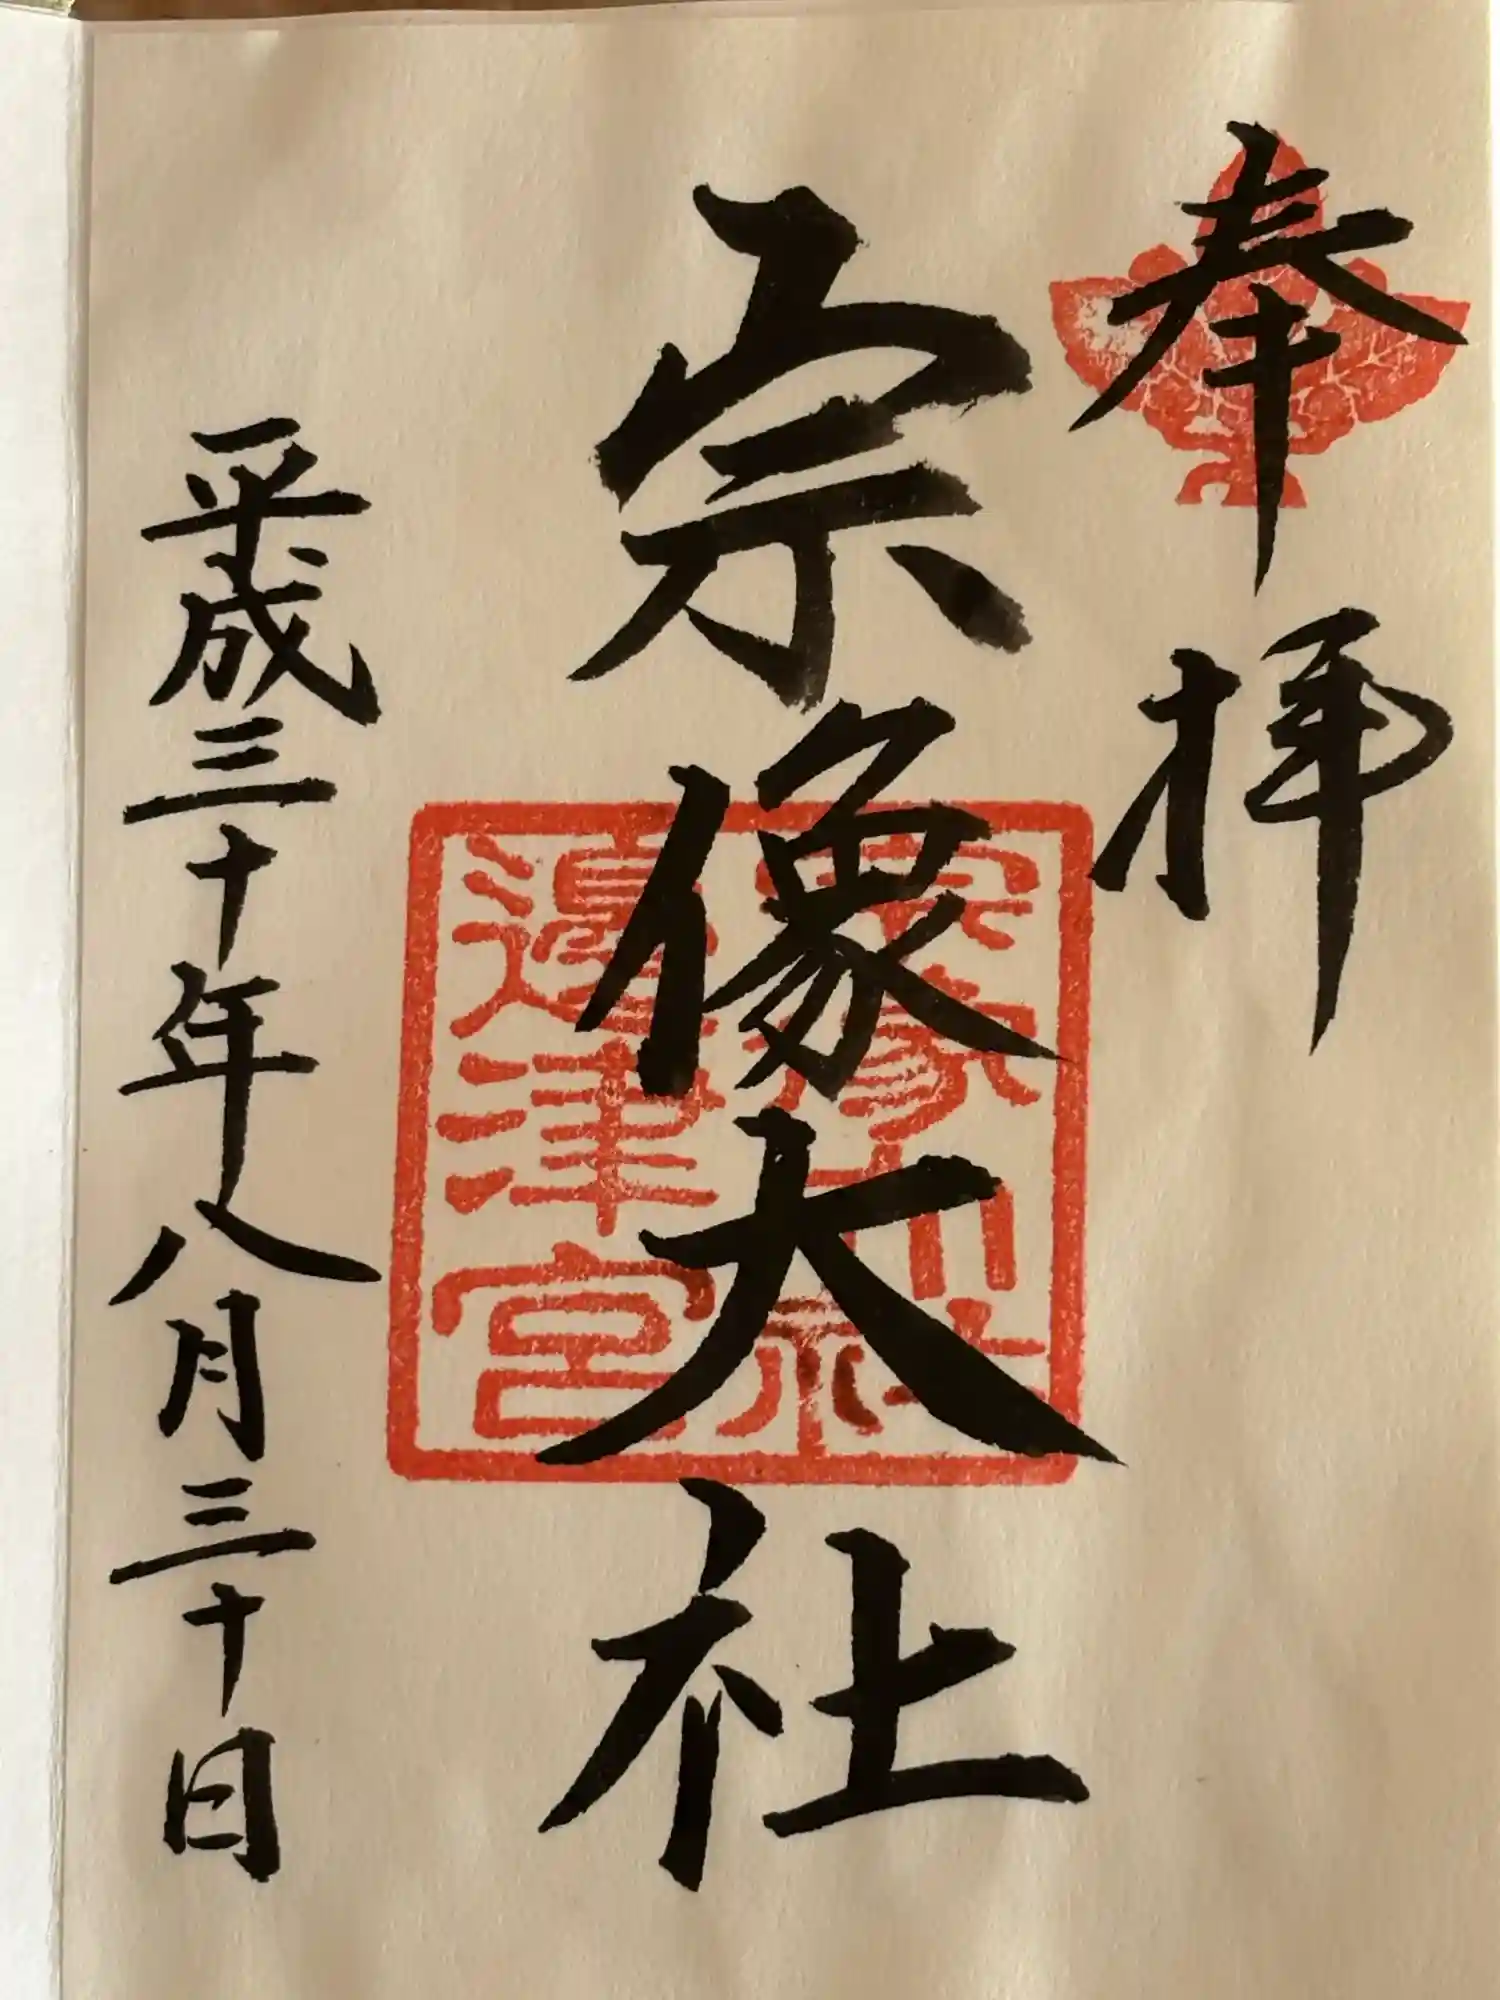 奉拝
宗像大社
宗像大社
邊津宮
平成三十年八月三十日